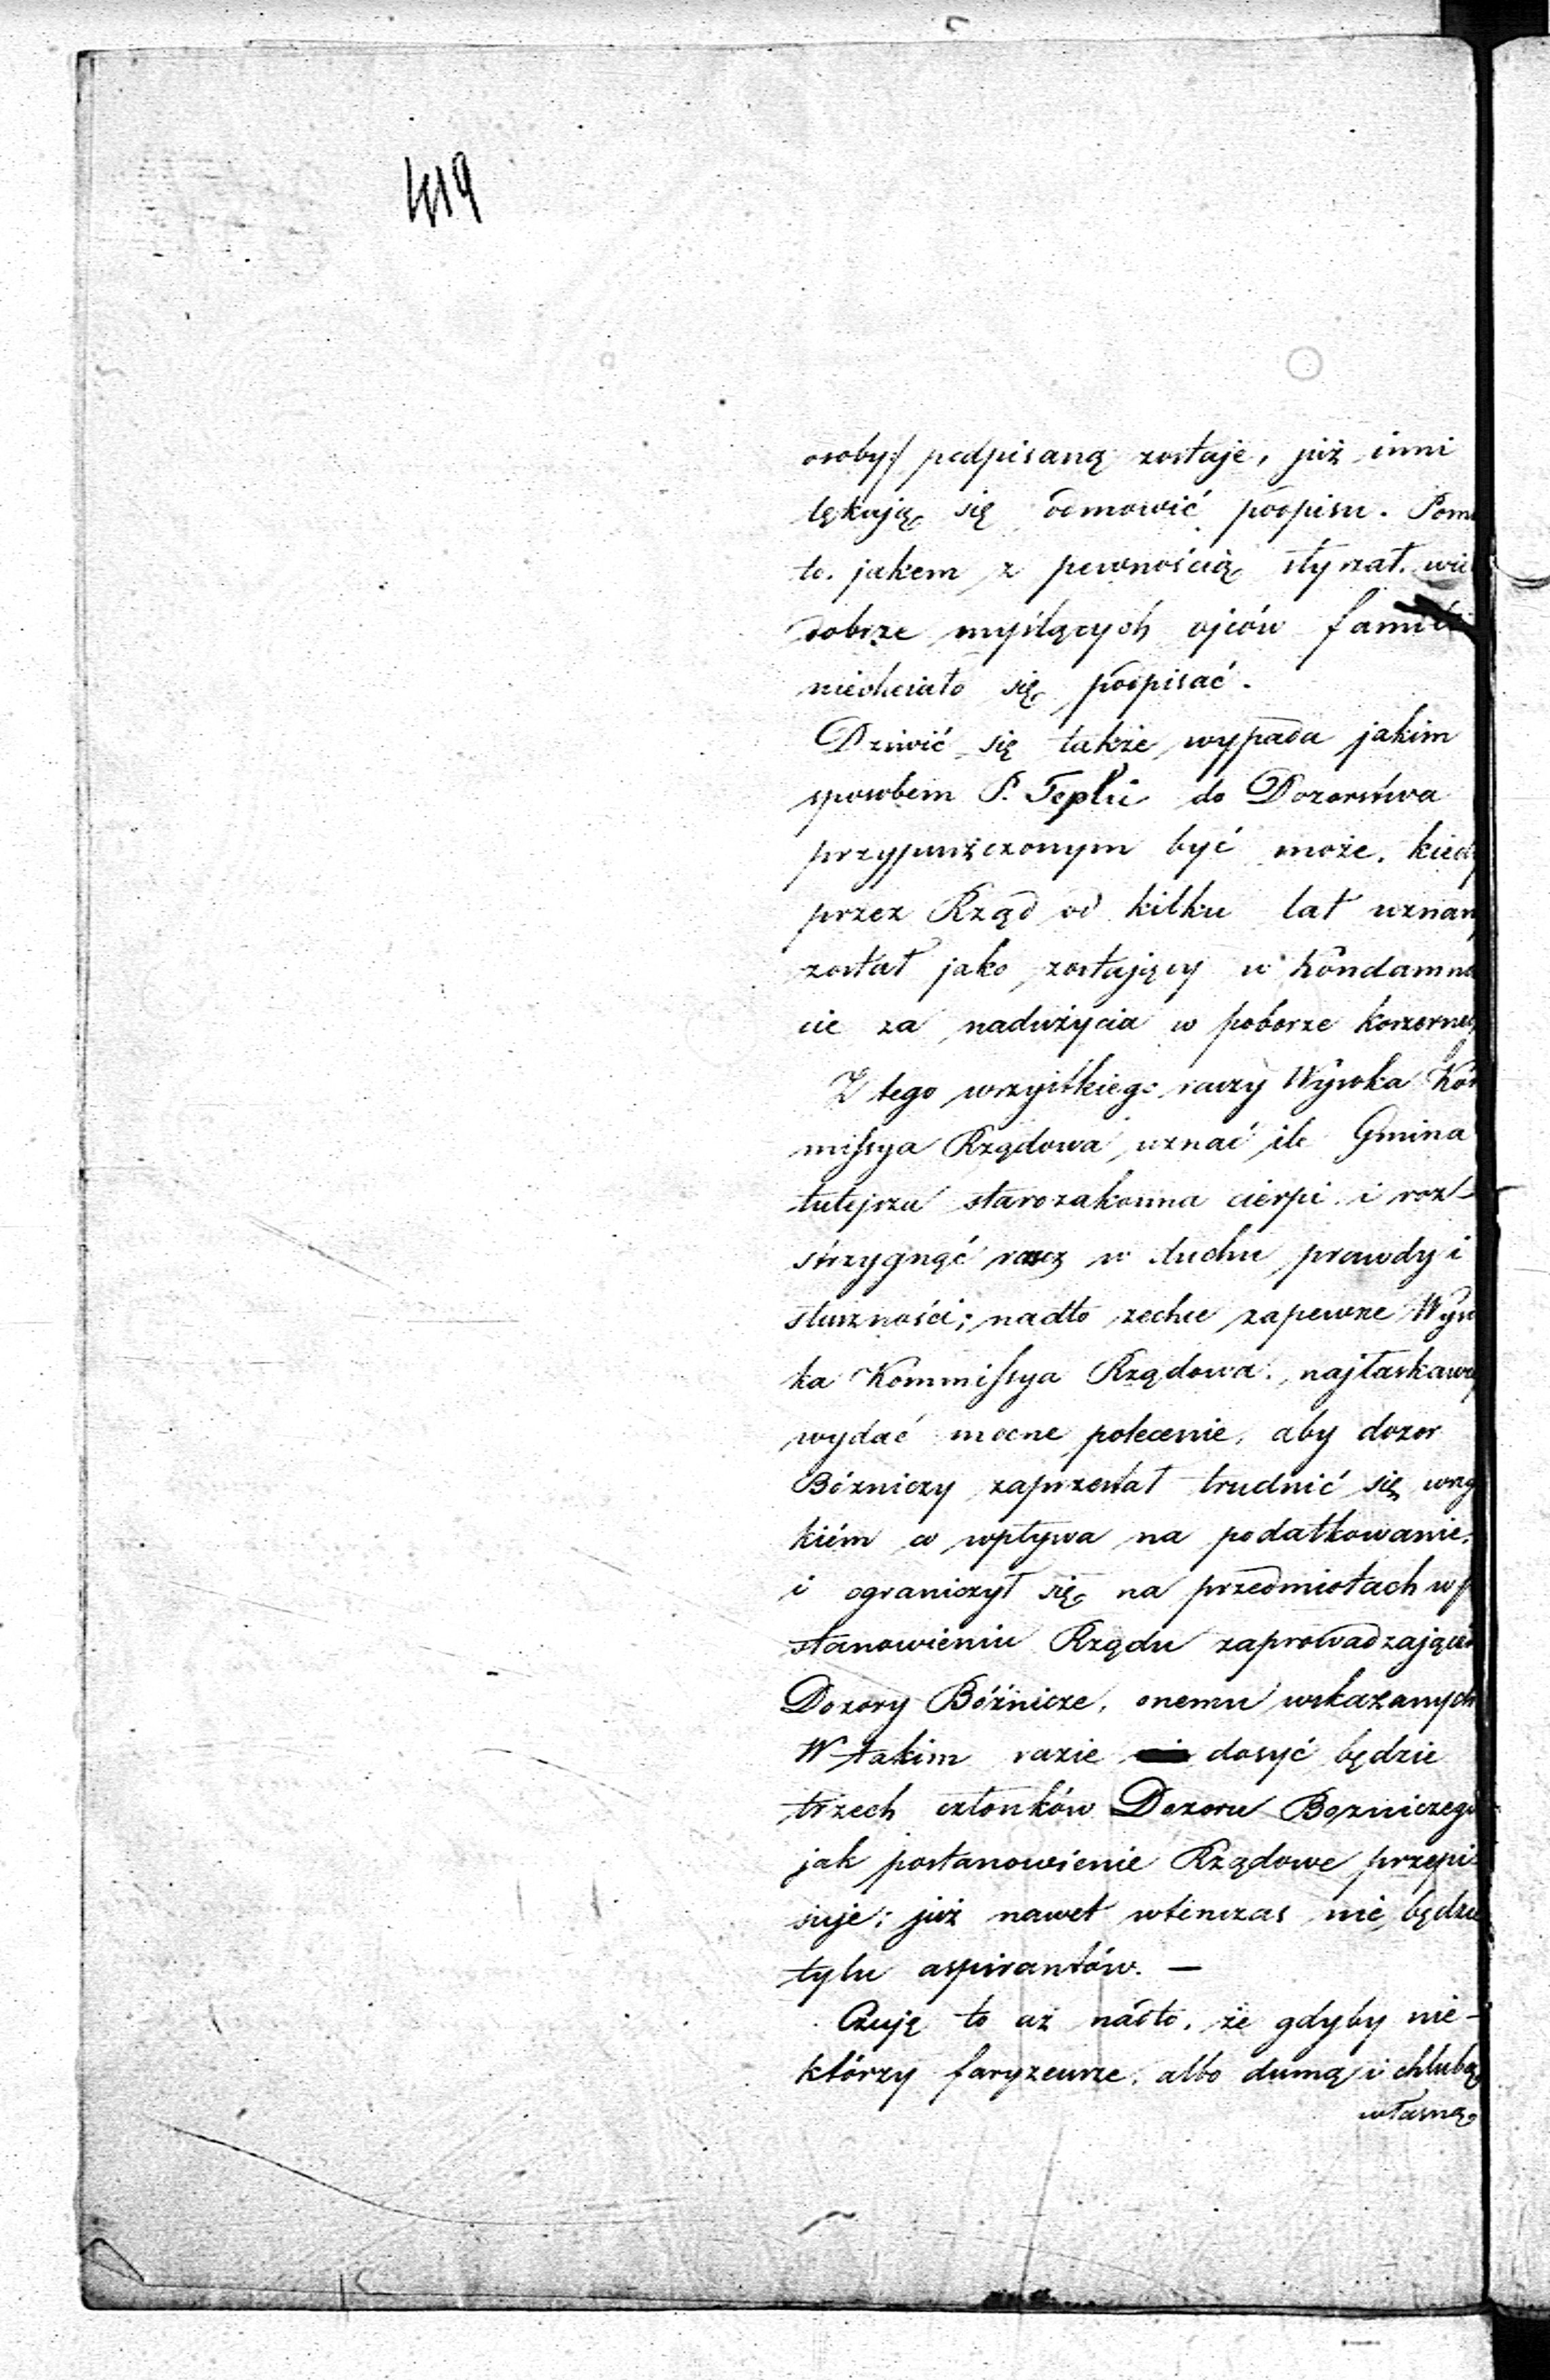 419
osoby:/ podpisaną zostaje, już inni
lękają się odmowić podpisu. Pom
to. jakem z pewnością słyszał. wie
dobrze myślących ojców famili
niechciało się podpisać.
Dziwić się także wypada jakim
sposobem P. Teplü do Dozorstwa
przypuszczonym być może, kiedy
przez Rząd od kilku lat uznany
został jako zostający w kondamna
cie za nadużycia w poborze koszerneg
Z tego wszystkiego raczy Wysoka Kom
missya Rządowa uznać ile Gmina
tutejsza starozakonna cierpi i roz-
strzygnąć raczy w duchu prawdy i
słuszności; nadto zechce zapewne Wyso
ka Kommissya Rządowa. najłaskawiej
wydać mocne polecenie, aby dozor
Bózniczy zaprzestał trudnić się wszy
kiém co wpływa na podatkowanie.
i ograniczył się na przedmiotach w p
stanowieniu Rządu zaprowadzającém
Dozory Bóźnicze, onemu wskazanych
W takim razie dosyć będzie
trzech członków Dozoru Bozniczego
jak postanowienie Rządowe przepi
suje; już nawet wtenczas nie będzie
tylu aspirantów. —
Czuję to aż nadto, że gdyby nie-
którzy faryzeusze, albo dumą i chlubą
własną